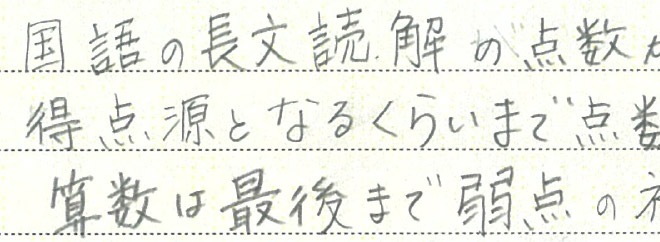 国語の長文読解の点数
得点源となるくらいまで点数
算数は最後まで弱点の